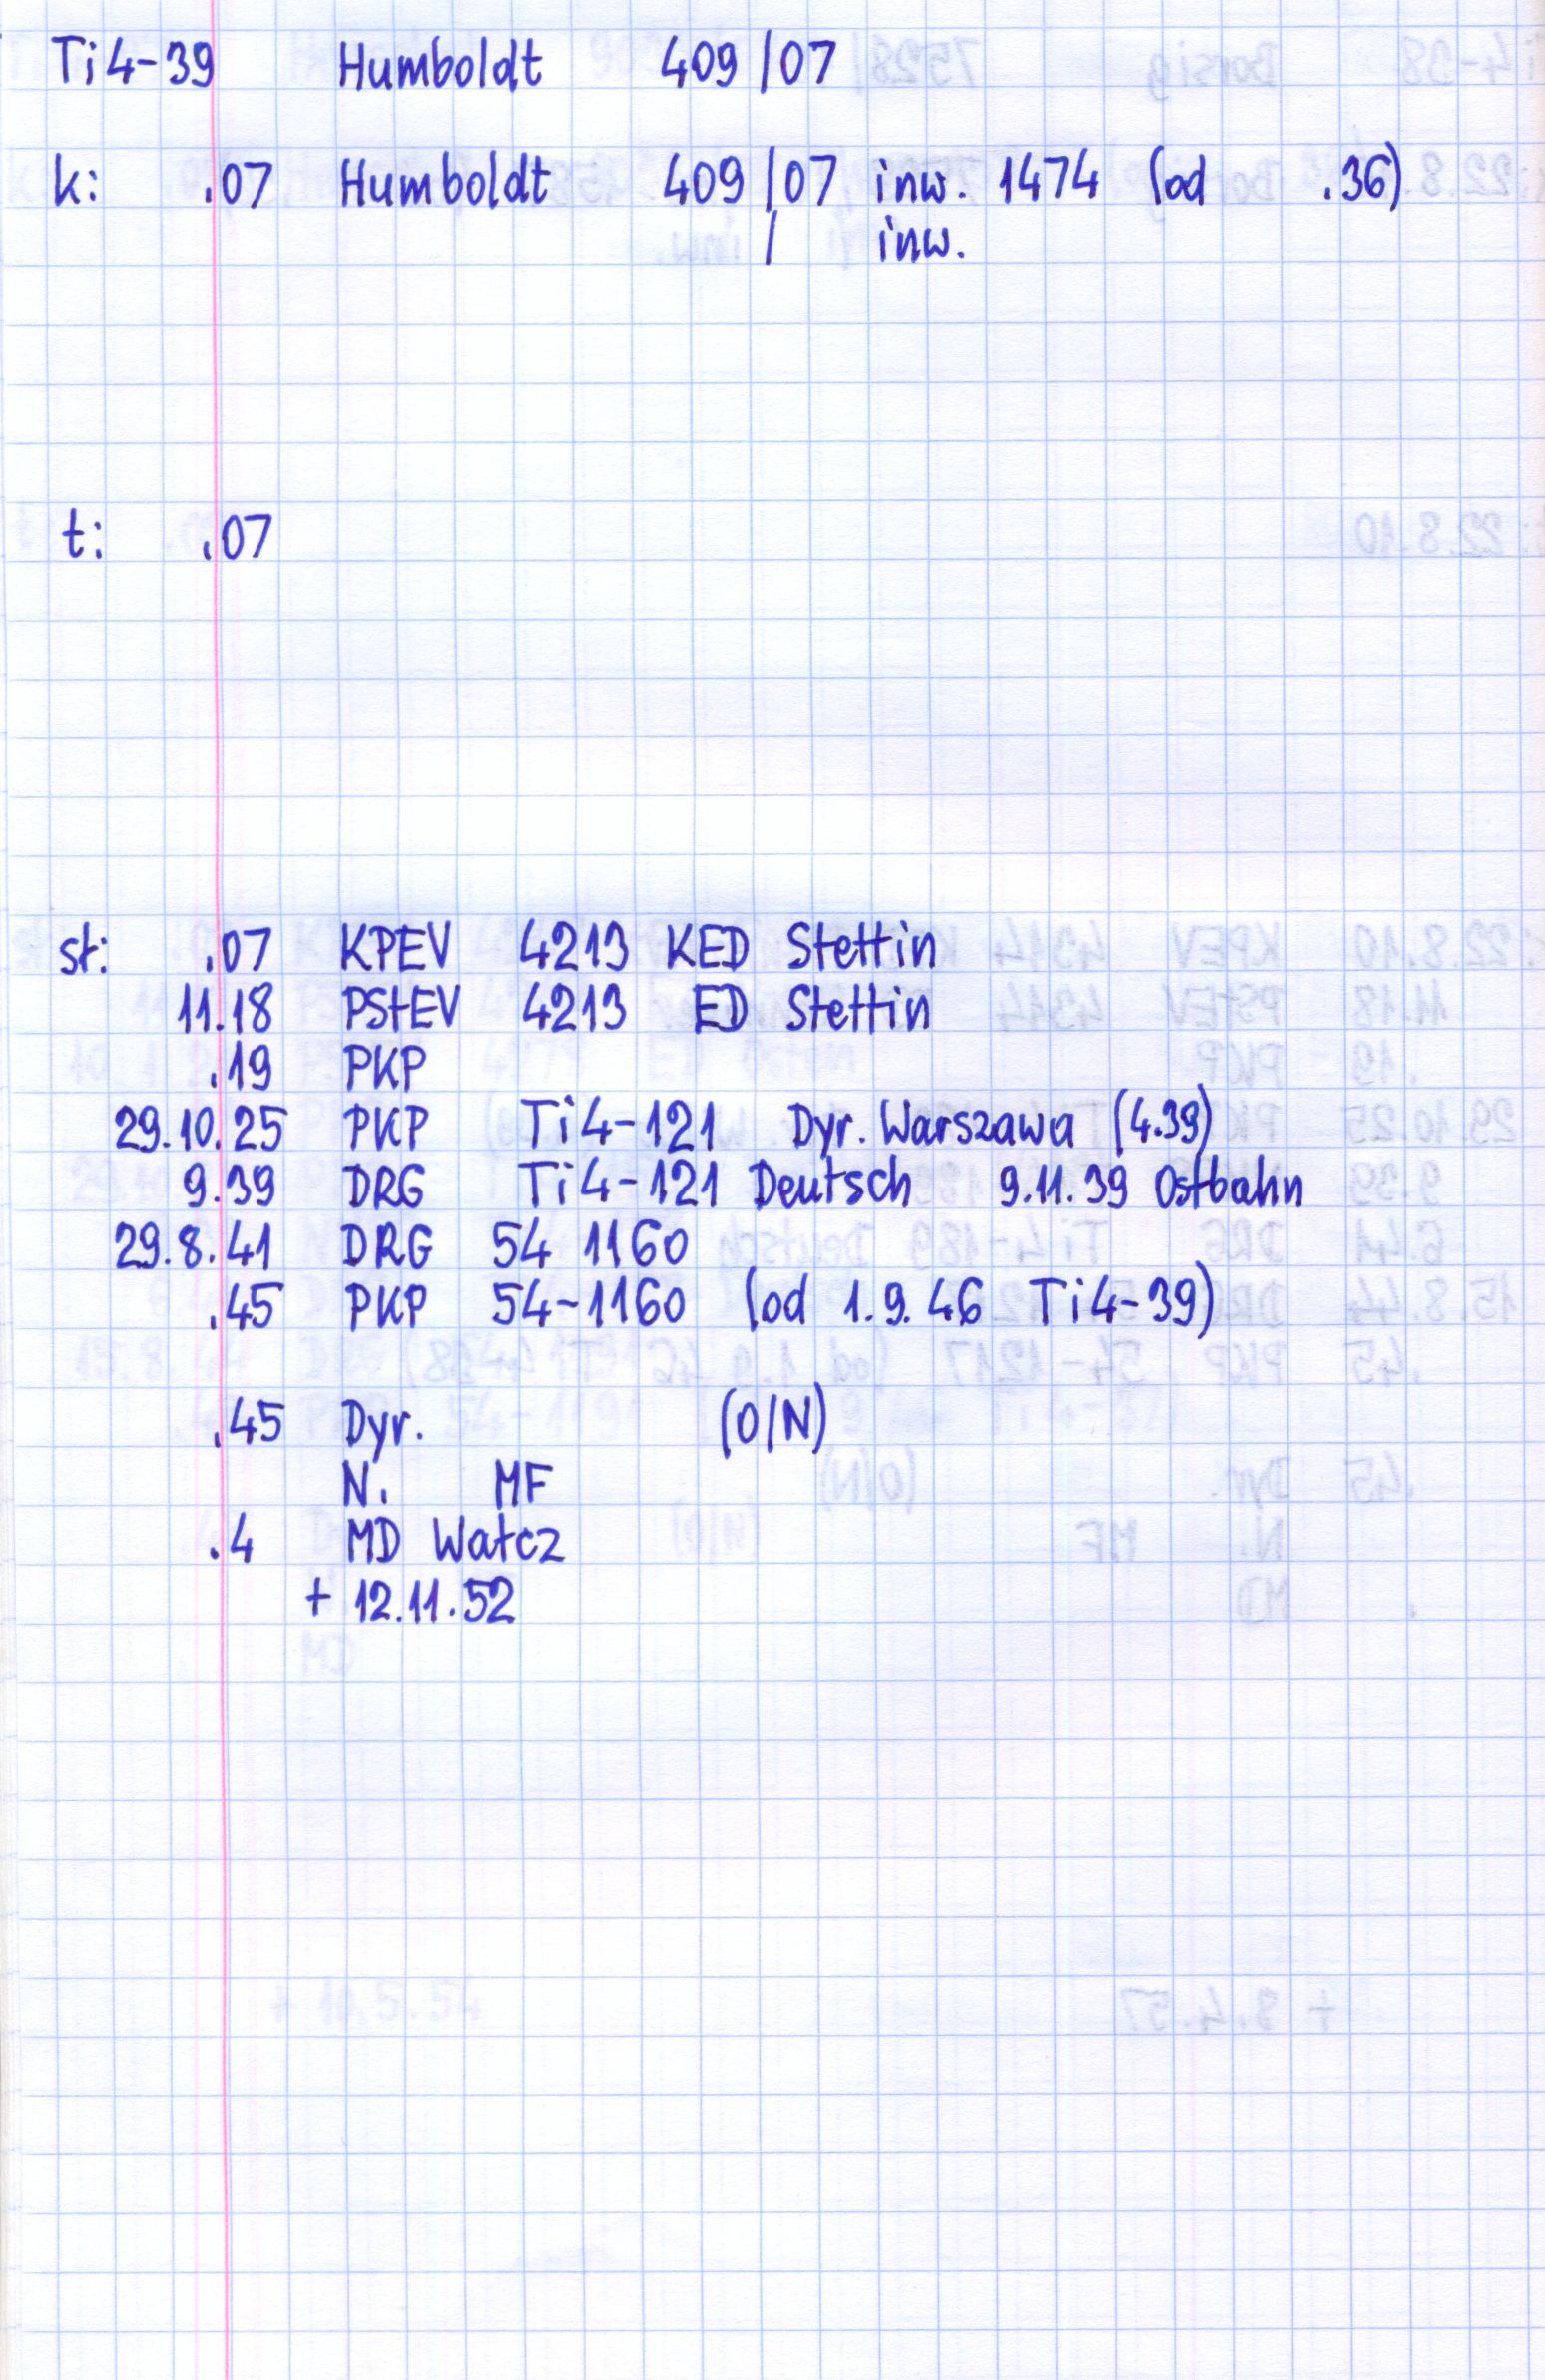 Ti4-39 Humboldt 409/07
k: .07 Humboldt 409/07 inw. 1474 (od .36)
/ inw.
t: .07
st: .07 KPEV 4213 KED Stettin
11.18 PStEV 4213 ED Stettin
.19 PKP
29.10.25 PKP Ti4-121 Dyr. Warszawa (4.39)
9.39 DRG Ti4-121 Deutsch 9.11.39 Ostbahn
29.8.41 DRG 54 1160
.45 PKP 54-1160 (od 1.9.46 Ti4-39)
.45 Dyr. (O/N)
N. MF
.4 MD Wałcz
+ 12.11.52